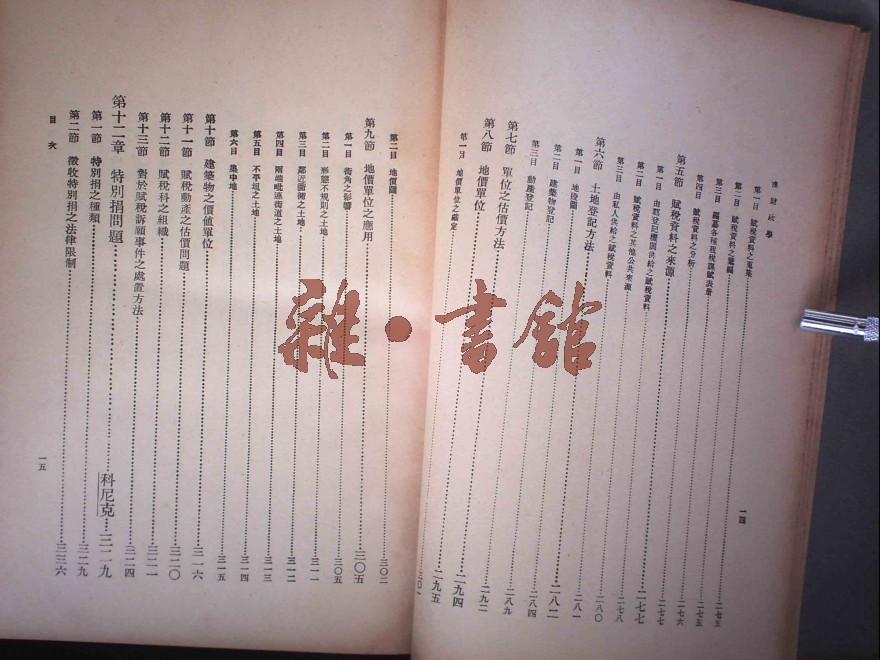 財政學
第一目 賦稅資料之蒐集……二七五
第二目 賦稅資料之彙編……二七五
第三目 編纂各種租稅課賦表册……二七五
第四目 賦稅資料之分析……二七六
第五節 賦稅資料之來源……二七七
第一目 由登記機關供給之賦稅資料……二七七
第二目 賦稅資料之其他公共來源
第三目 由私人供給之賦稅資料……二七八
第六節 土地登記方法……二八〇
第一目 地段圖……二八一
第二目 建築物登記……二八二
第三目 動產登記……二八四
第七節 單位之估價方法……二八九
第八節 地價單位……二九二
第一目 地價單位之確定……二九四
一四
第二目 地價圖……三〇二
第九節 地價單位之應用……三〇五
第一目 街角之影響……三〇五
第二目 形態不規則之土地……三一一
第三目 鄰近衝衕之土地……三一二
第四目 兩端毗連街道之土地……三一三
第五目 不平坦之土地……三一四
第六目 集中地……三一五
第十節 建築物之價值單位……三一六
第十一節 賦稅動產之估價問題……三二〇
第十二節 賦稅科之組織……三二一
第十三節 對於賦稅訴願事件之處置方法……三二四
第十二章 特別捐問題……科尼克……三二九
第一節 特別捐之種類……三二九
第二節 徵收特別捐之法律限制……三三六
目次
一五
雜·書館